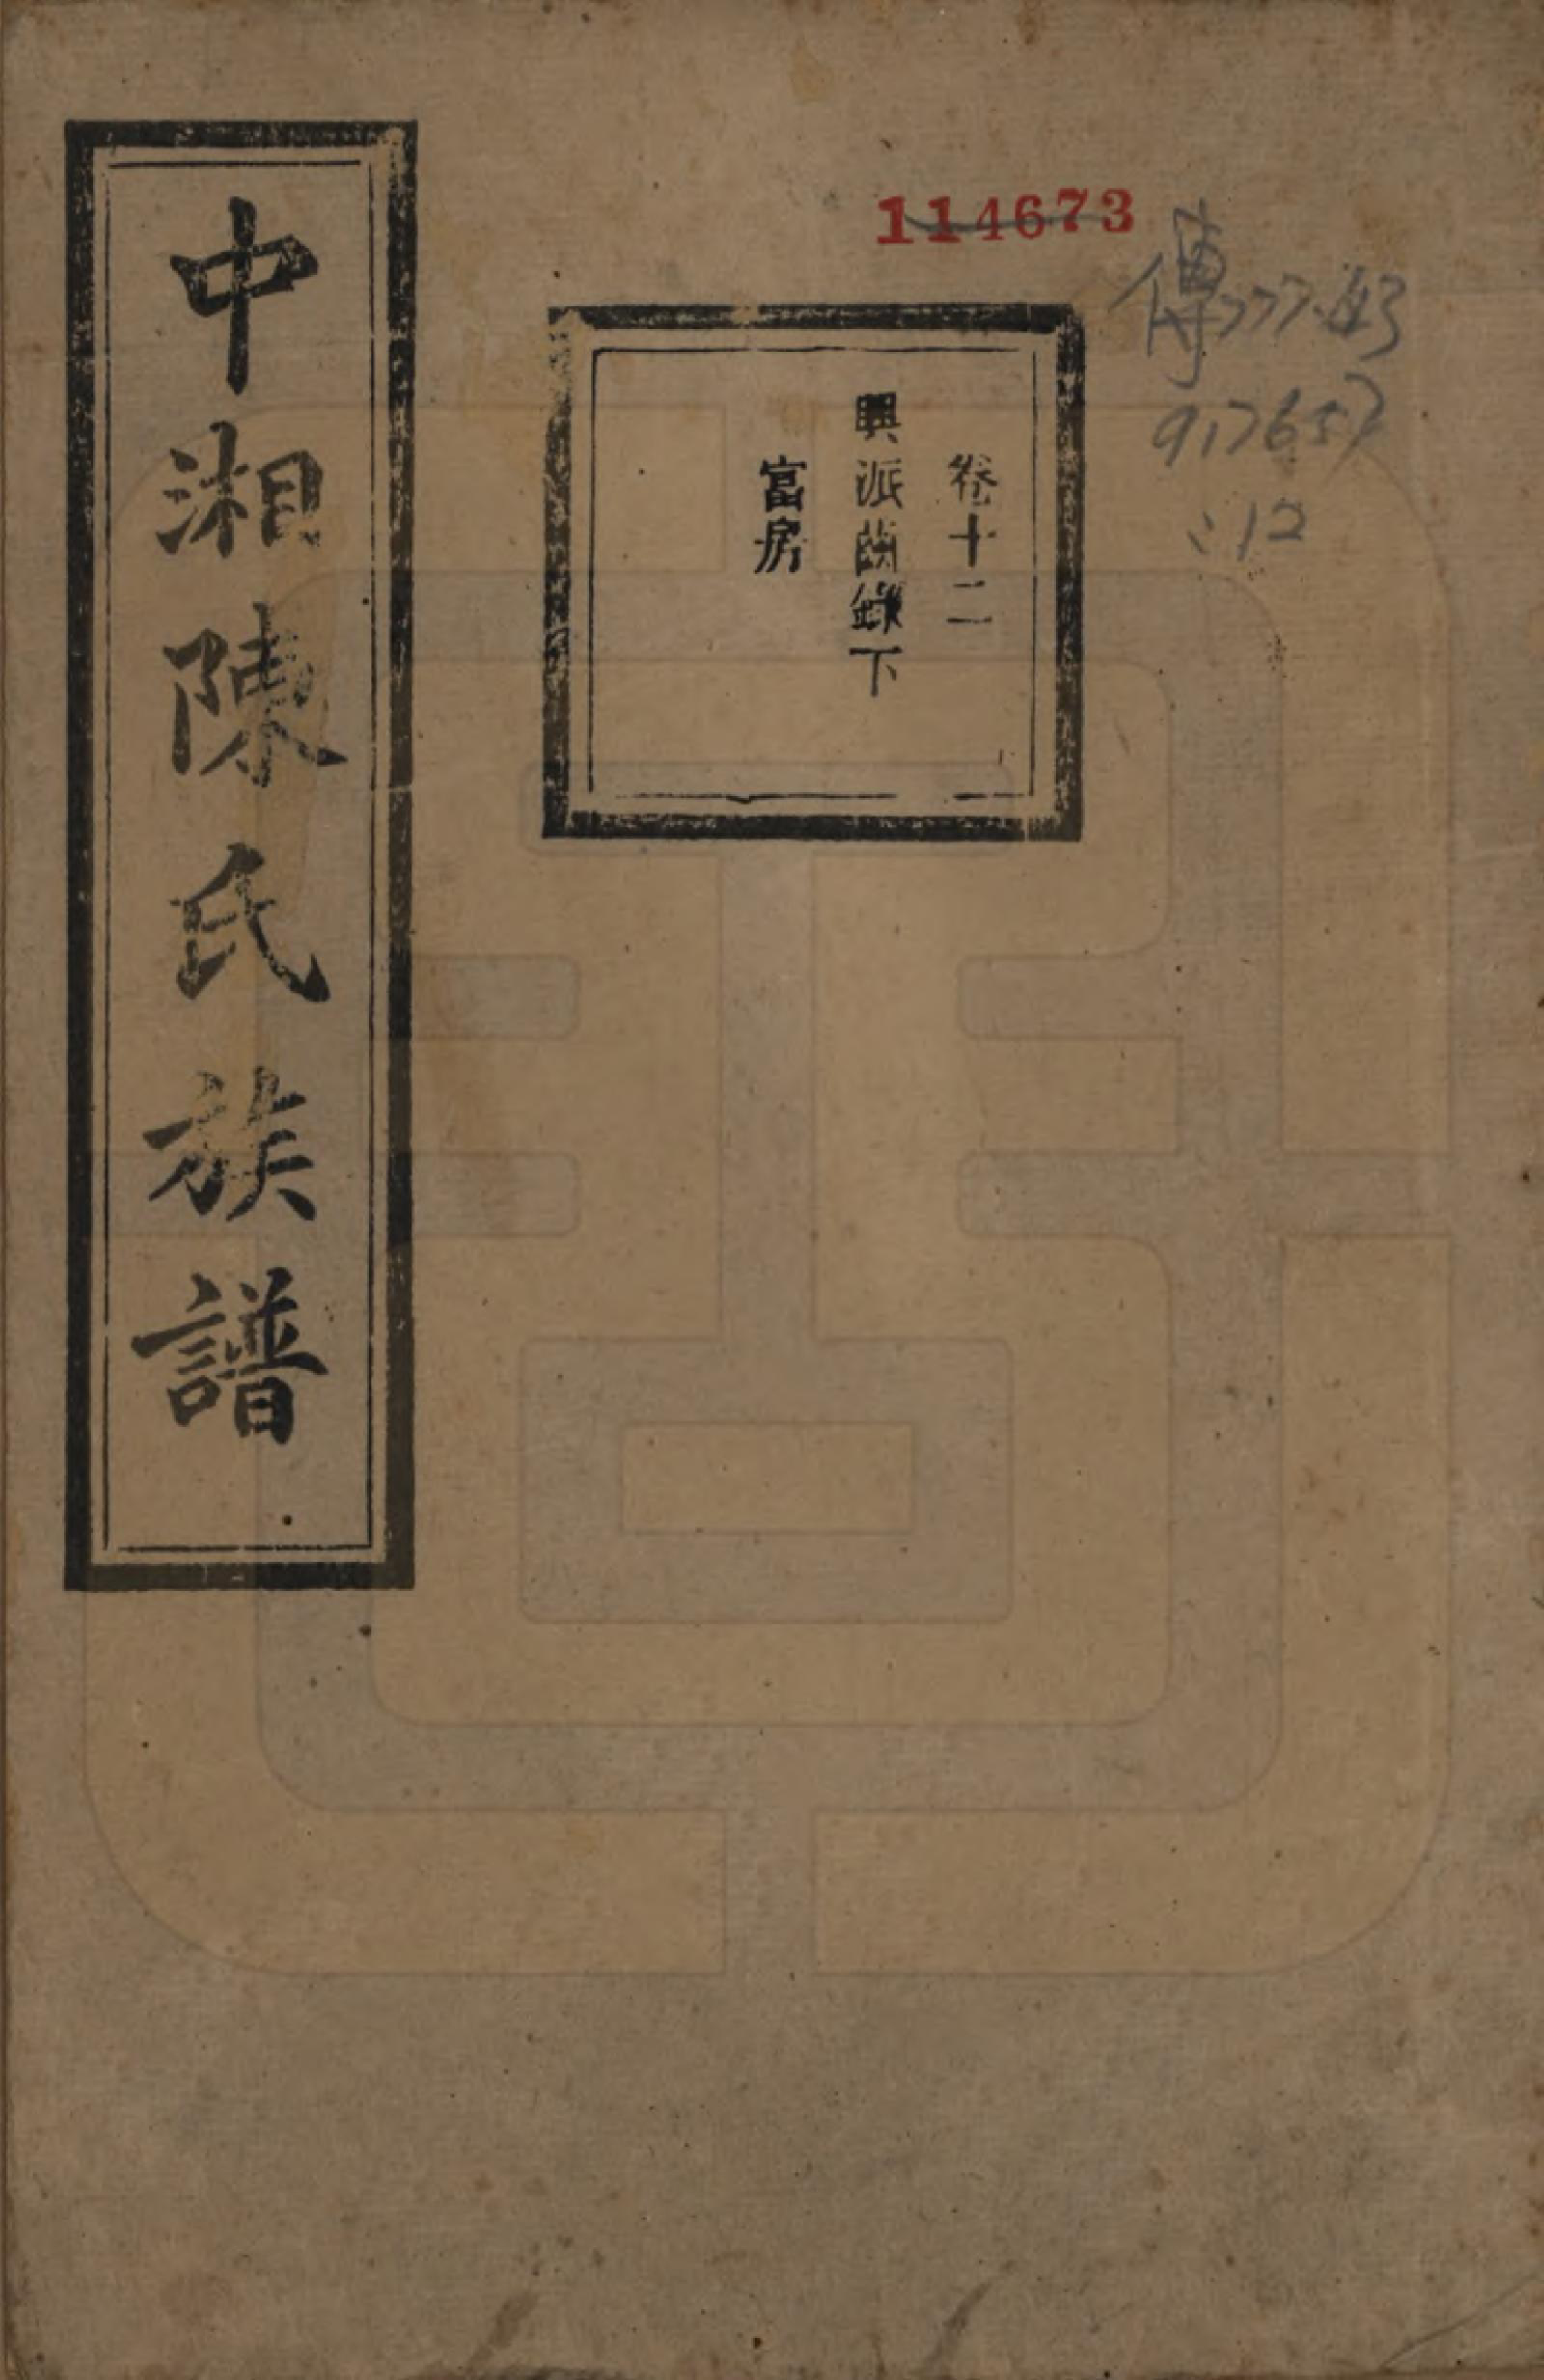 中湘陳氏族譜
卷十二
興派齒錄下
富房
114673
傳777.43
917657
:12